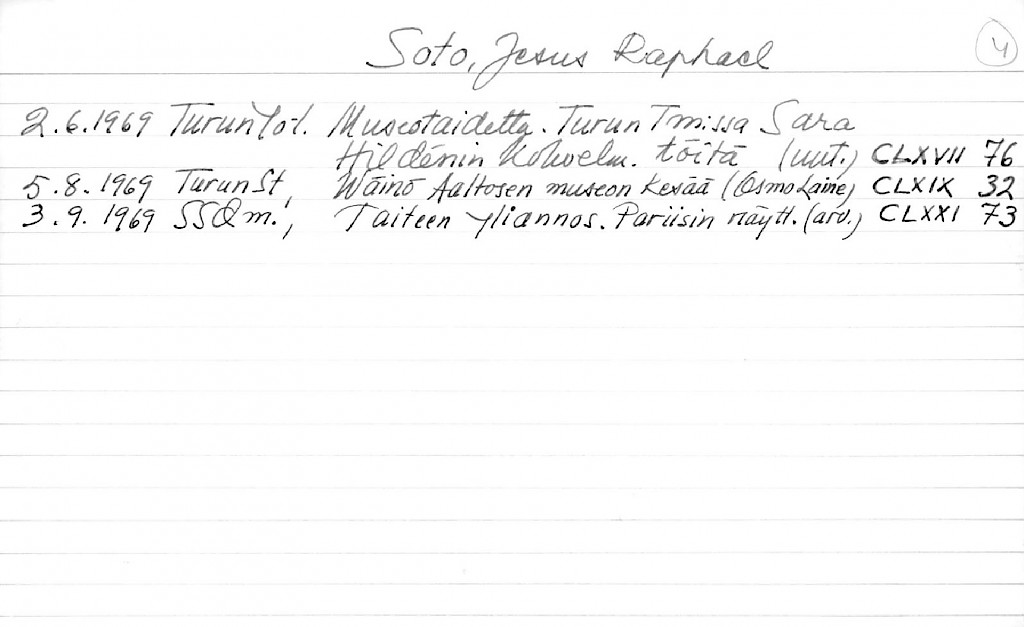 Soto, Jesus Raphael 4
2.6.1969 Turun Museotaidetta. Turun Tmissa Sara
Hildénin töitä (uut.) CLXVII 76
5.8.1969 Turun St, Wäinö Aaltosen museon kesää (Osmo Laine) CLXIX 32
3.9.1969 Taiteen yliannos. Pariisin näytt. (arv.) CLXXI 73